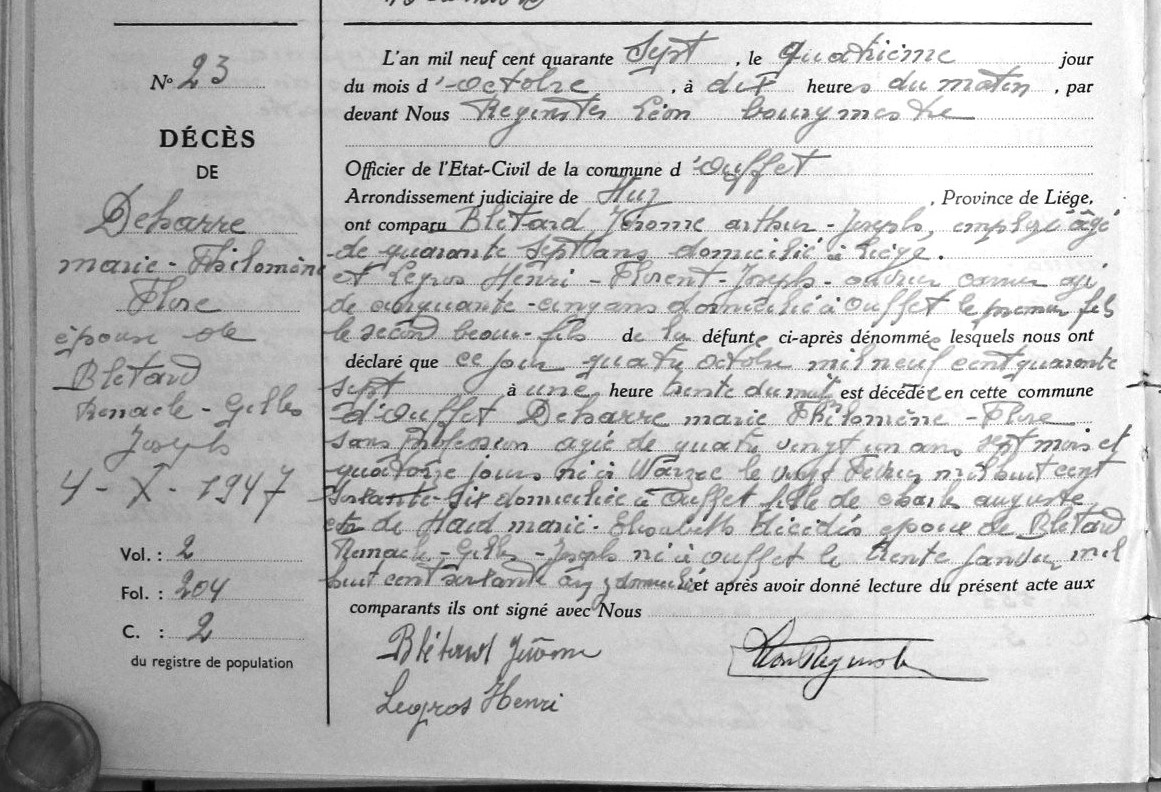 N° 23
DÉCÈS
DE
Deharre
marie - Philomène
Flore
épouse de
Blétard
Remacle - Gilles
Joseph
4 - X - 1947
Vol. : 2
Fol. : 204
C. : 2
du registre de population
L'an mil neuf cent quarante Sept , le quatrième jour
du mois d'octobre , à dix heures du matin , par
devant Nous Reginster Léon bourgmestre
Officier de l'Etat-Civil de la commune d'Ouffet
Arrondissement judiciaire de Huy , Province de Liége,
ont comparu Blétard, Jérome arthur - Joseph, employé âgé
de quarante sept ans domicilié à Liège.
et Legros Henri - Florent - Joseph - ouvrier carrier agé
de cinquante - cinq ans domicilié à Ouffet le premier fils
le second beau-fils de la défunte ci-après dénommée lesquels nous ont
déclaré que ce jour quatre octobre mil neuf cent quarante
sept à une heure trente du est décédée en cette commune
d'Ouffet Deharre marie Philomène - Flore
sans profession agée de quatre vingt un ans sept mois et
quatorze jours née à Warzée le vingt février mil huit cent
soixante-six domiciliée à Ouffet fille de charle auguste
et de Haid marie - Elisabeth décédés épouse de Blétard
Remacle - Gilles - Joseph né à Ouffet le trente janvier mil
huit cent soixante cinq y domicilié et après avoir donné lecture du présent acte aux
comparants ils ont signé avec Nous
Blétard Jérome
Léon Reginster
Legros Henri